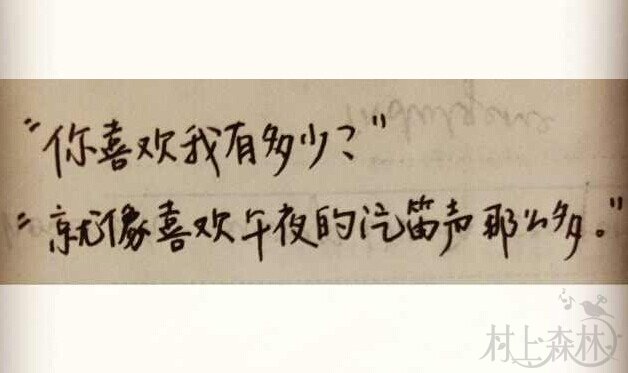 “你喜欢我有多少？”
“就像喜欢午夜的汽笛声那么多。”
村上森林